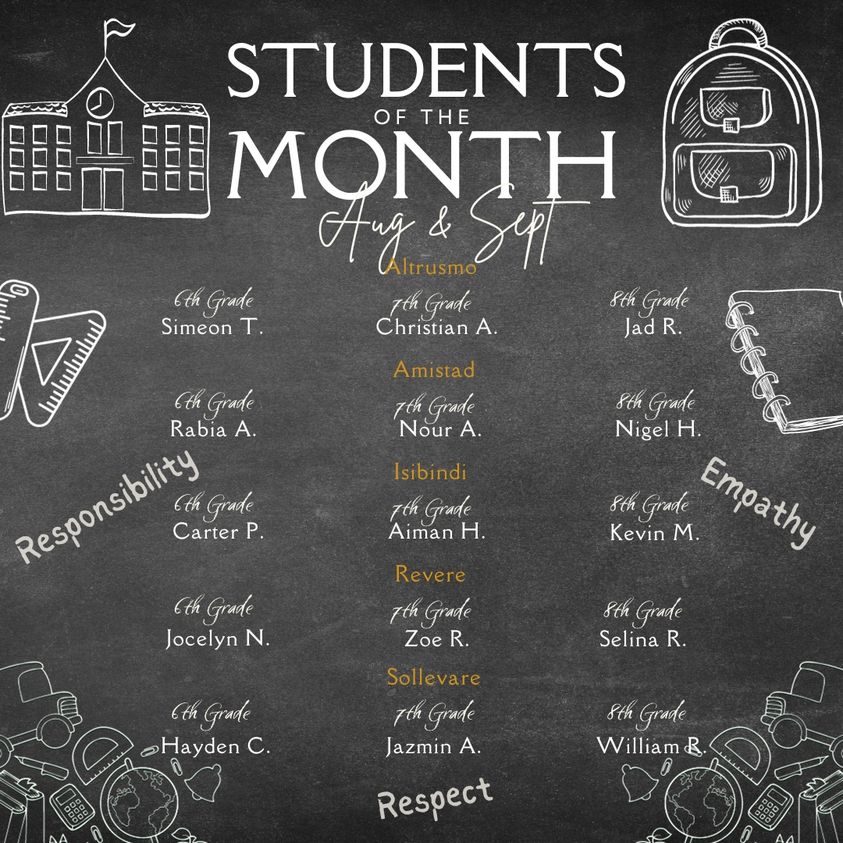 STUDENTS
OF THE
MONTH
Aug & Sept
Altrusmo
6th Grade 7th Grade 8th Grade
Simeon T. Christian A. Jad R.
Amistad
6th Grade 7th Grade 8th Grade
Rabia A. Nour A. Nigel H.
Isibindi
Responsibility
Empathy
6th Grade 7th Grade 8th Grade
Carter P. Aiman H. Kevin M.
Revere
6th Grade 7th Grade 8th Grade
Jocelyn N. Zoe R. Selina R.
Sollevare
6th Grade 7th Grade 8th Grade
Hayden C. Jazmin A. William R.
Respect